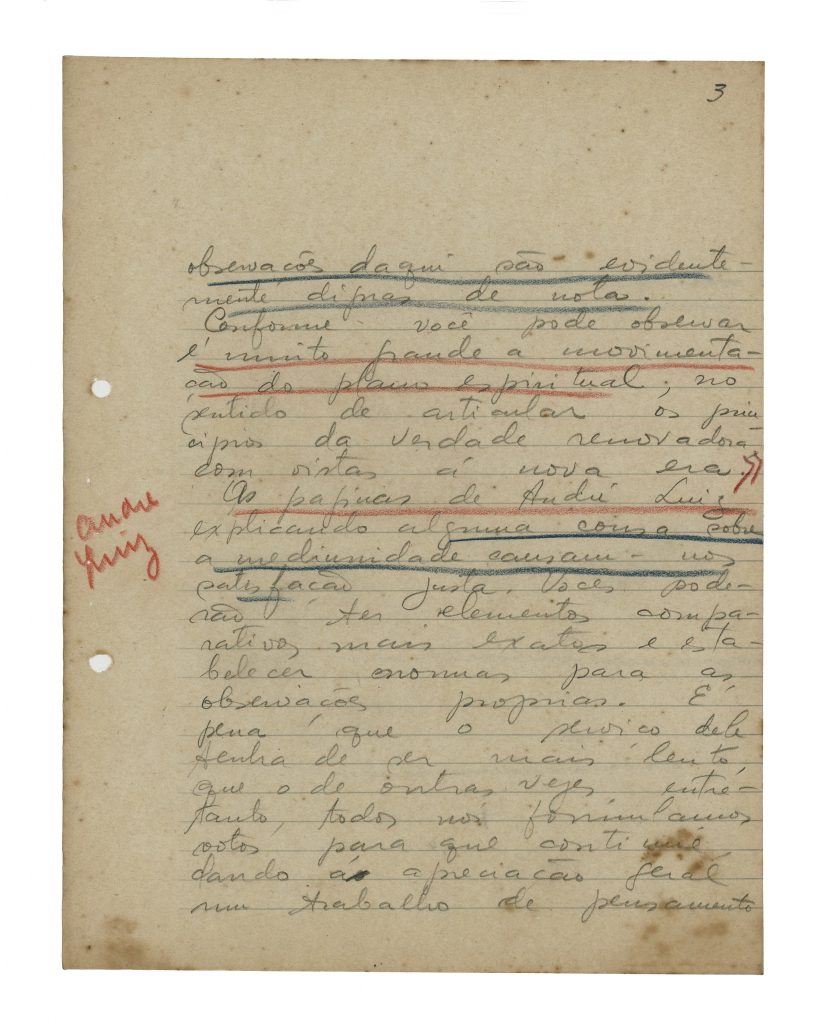 3
observações daqui são evidente-
mente dignas de nota.
Conforme você pode observar
é muito grande a movimenta-
ção do plano espiritual; no
sentido de articular os prin
cipios da verdade renovadora
com vistas á nova era.
As paginas de André Luiz
explicando alguma coisa sobre
a mediunidade causam-nos
satisfação justa. Voces pode-
rão ter elementos compa-
rativos mais exatos e esta-
belecer normas para as
observações proprias. É
pena que o serviço dele
tenha de ser mais lento,
que o de outras vezes entre-
tanto, todos nós formulamos
votos para que continue
dando á apreciação geral
um trabalho de pensamento
André
Luiz